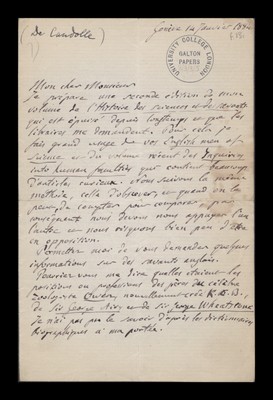 (De Candolle)
Genève 14 Janvier 1884
UNIVERSITY COLLEGE LONDON
GALTON PAPERS
Mon cher Monsieur
Je prépare une seconde édition de mon
volume de l'Histoire des sciences et des savants
qui est épuisé depuis longtemps et que les
libraires me demandent. Pour cela je
fais grand usage de vos English men of
Science et du volume récent des Inquiries
into human faculties qui contient beaucoup
d'articles curieux. Nous suivons la même
méthode, celle d'observer, et quand on le
peut de compter pour comparer, par
conséquent nous devons nous appuyer l'un
l'autre et nous risquons bien peu d'être
en opposition.
Permettez moi de vous demander quelques
informations sur des savants anglais.
Pourriez-vous me dire quelles étaient les
positions ou professions des pères du célèbre
zoologiste Owen, nouvellement créé K.C.B.,
de Sir George Airy et de Sir George Wheatstone
Je n'ai pas pu le savoir d'après les dictionnaires
biographiques à ma portée.